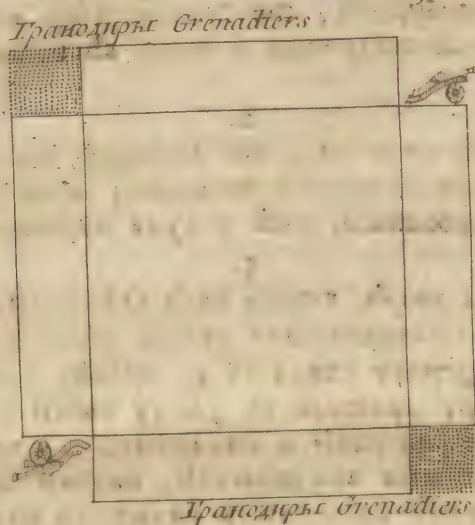 Гранодиры Grenadiers
Гранодиры Grenadiers